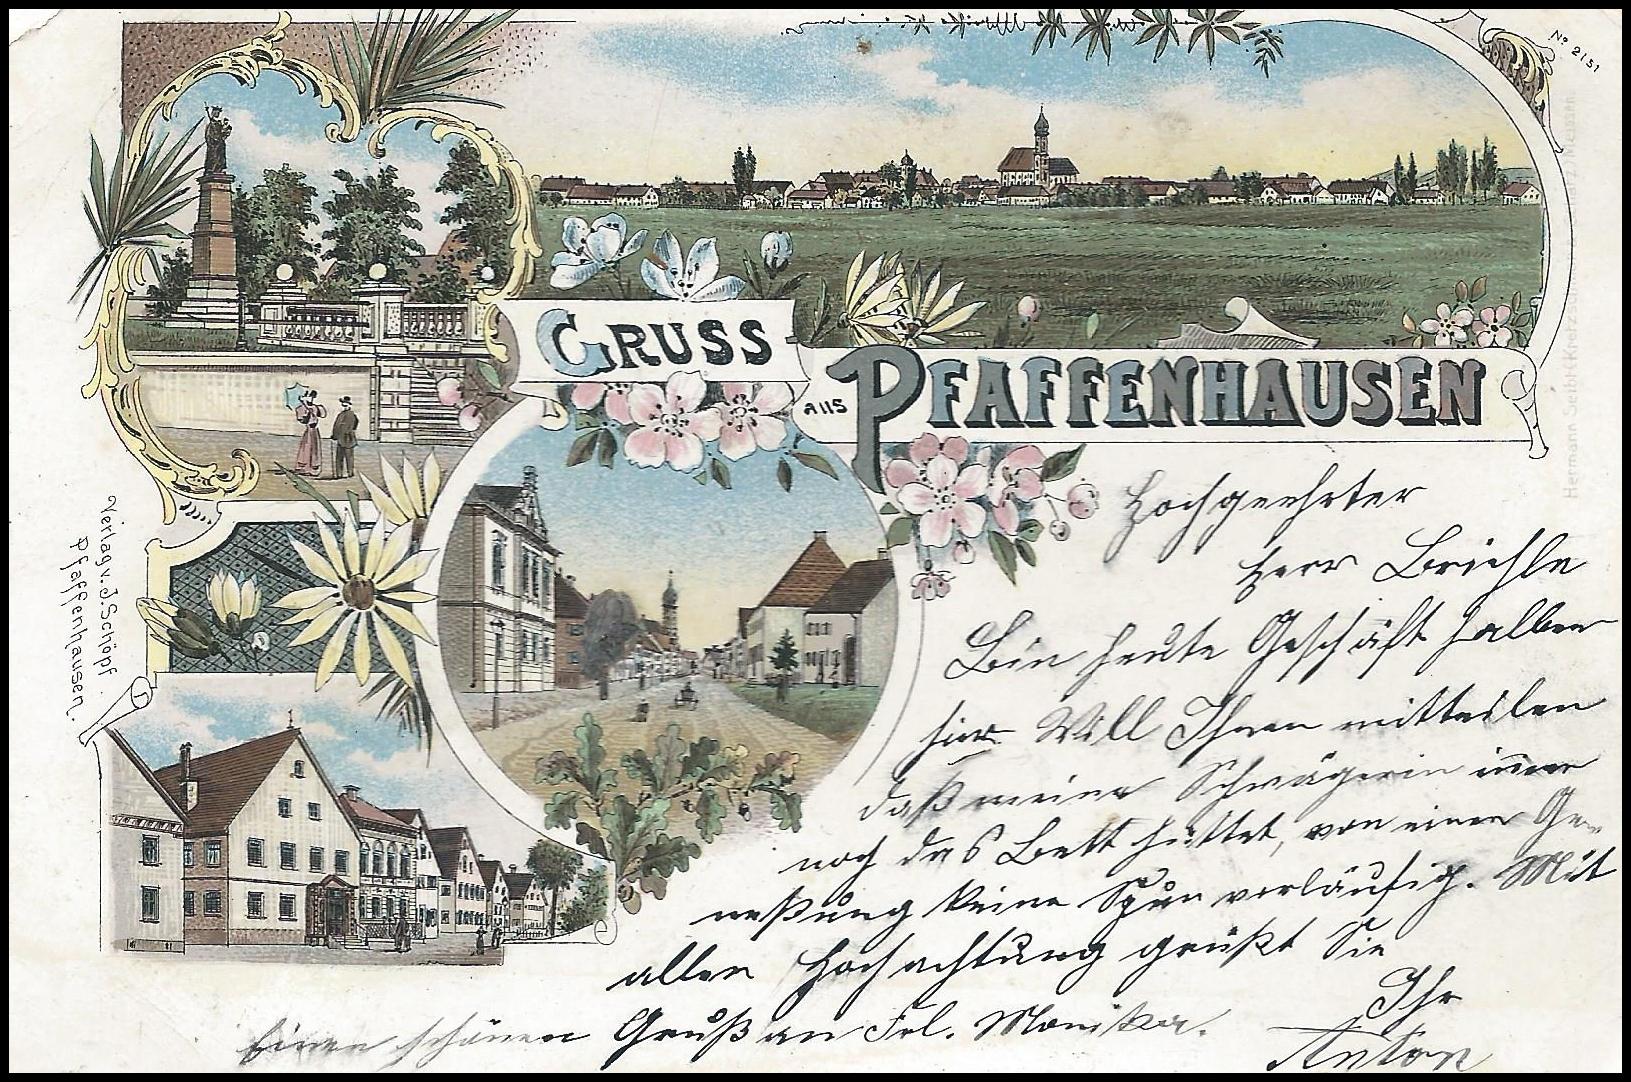 No 2151
GRUSS
aus PFAFFENHAUSEN
Verlag v. J. Schöpf.
Pfaffenhausen.
Hochgeehrter
Herr Brichle
Bin heute Geschäft halber
hier Will Ihnen mitteilen
daß meine Schwägerin immer
noch das Bett hüttet, von einer Ge-
neßung keine Spur vorläufig. Mit
aller Hochachtung grüßt Sie
Ihr
Anton
Einen schönen Gruß an Frl. Monika.